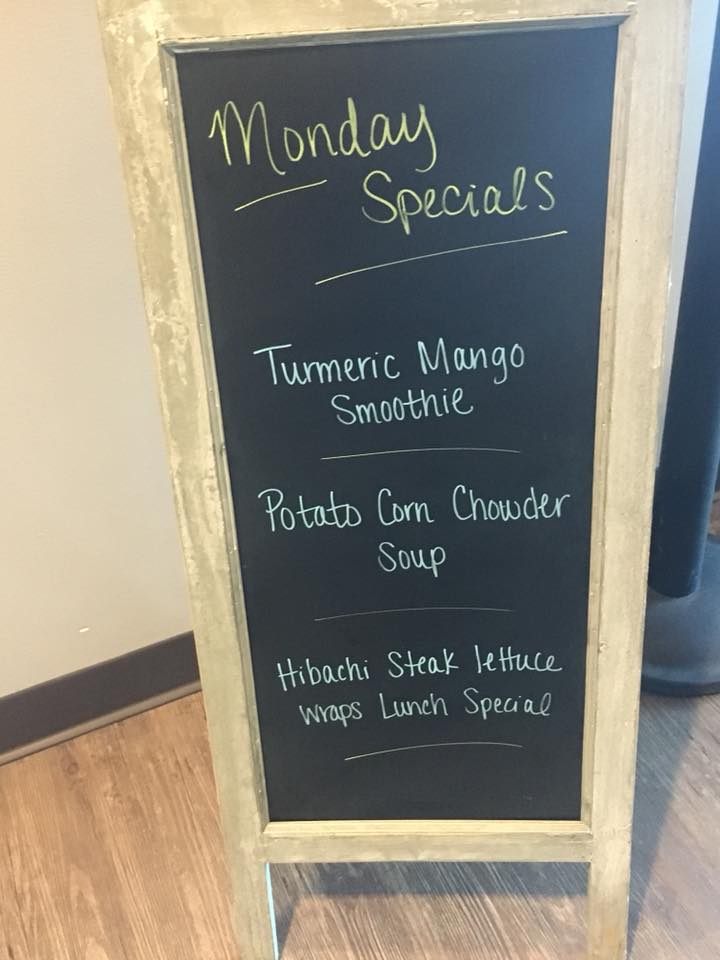 Monday
Specials
Turmeric Mango
Smoothie
Potato Corn Chowder
Soup
Hibachi Steak lettuce
wraps Lunch Special